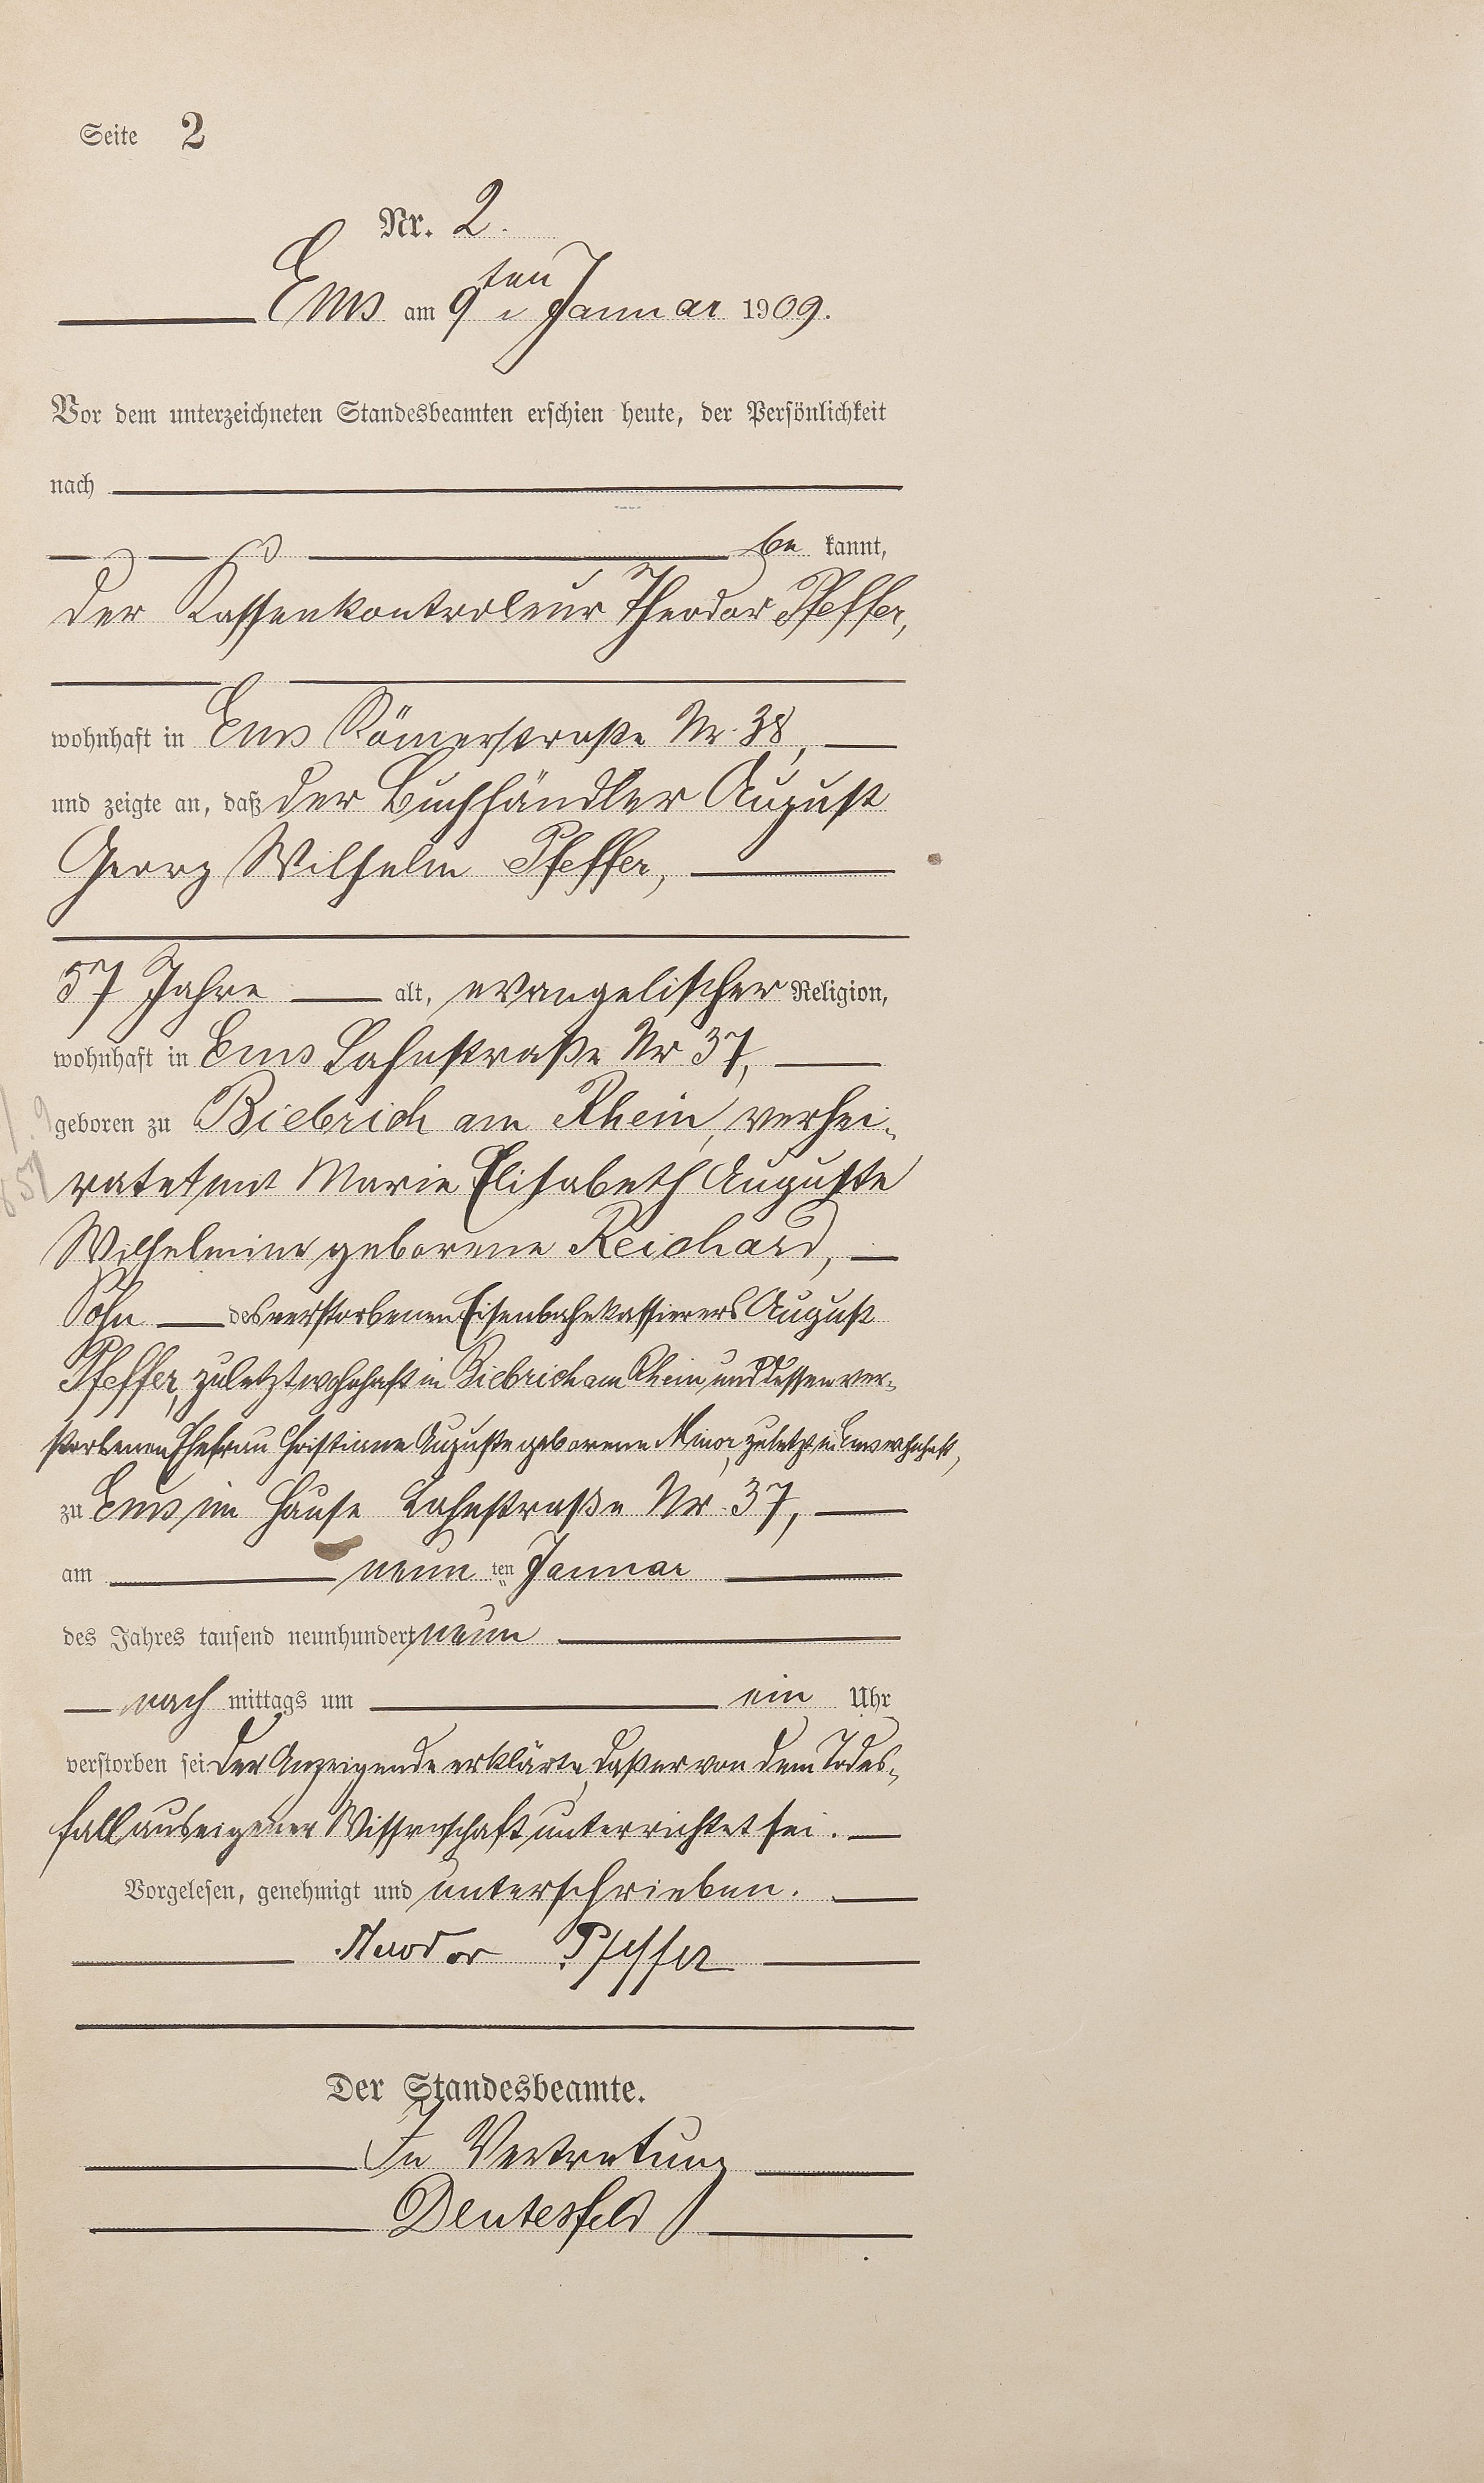 Seite 2
Nr. 2.
Ems am 9ten Januar 1909.
Vor dem unterzeichneten Standesbeamten erschien heute, der Persönlichkeit
nach
be kannt,
der Kassenkontroleur Theodor Pfeffer,
wohnhaft in Ems Römerstraße Nr. 38,
und zeigte an, daß der Buchhändler August
Georg Wilhelm Pfeffer,
57 Jahre alt, evangelischer Religion,
wohnhaft in Ems Lahnstraße Nr 37,
geboren zu Biebrich am Rhein, verhei-
ratet mit Marie Elisabeth Auguste
Wilhelmine geborene Reichard,
Sohn des verstorbenen Eisenbahnkassierers August
Pfeffer, zuletzt wohnhaft in Biebrich am Rhein und dessen ver-
storbenen Ehefrau Christiane Auguste geborene Minor, zuletzt in Ems wohnhaft,
zu Ems im Hause Lahnstraße Nr. 37,
am neun ten Januar
des Jahres tausend neunhundert neun
nach mittags um ein Uhr
verstorben sei. Der Anzeigende erklärte, daß er von dem Todes-
fall aus eigener Wissenschaft unterrichtet sei.
Vorgelesen, genehmigt und unterschrieben.
Theodor Pfeffer
Der Standesbeamte.
In Vertretung
Deutesfeld